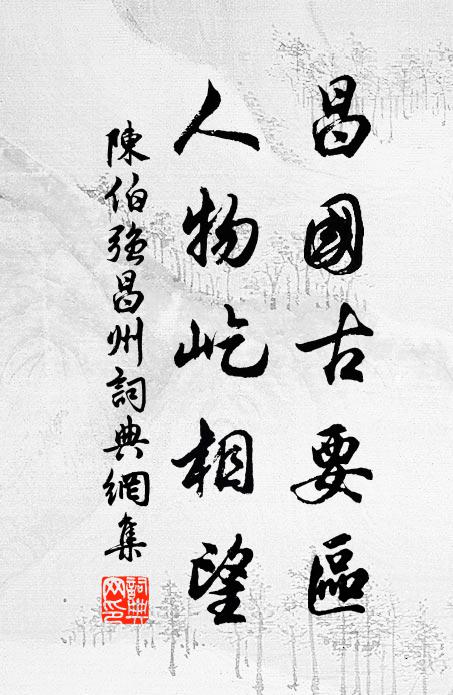 昌國古要區
人物屹相望
陳伯強昌州詞典網集
詞典
网印